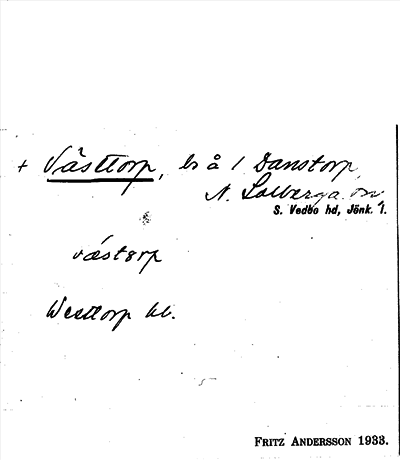 + Västtorp, ls å 1 Danstorp,
N. Solberga sn,
S. Vedbo hd, Jönk. l.
västorp
Westtorp bl.
FRITZ ANDERSSON 1933.